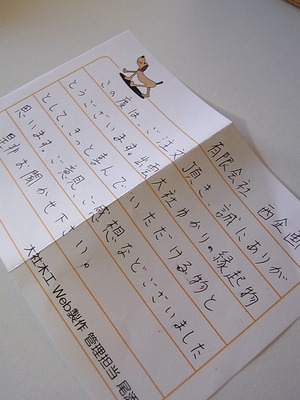 有限会社 西企画
この度は、ご注文頂き、誠にありが
とうございます。出雲大社ゆかり。縁起物
として、きっと喜んでいただける物と
思います。ご意見、ご感想などございました
是非お聞かせ下さい。
大社木工 Web製作 管理担当 尾添